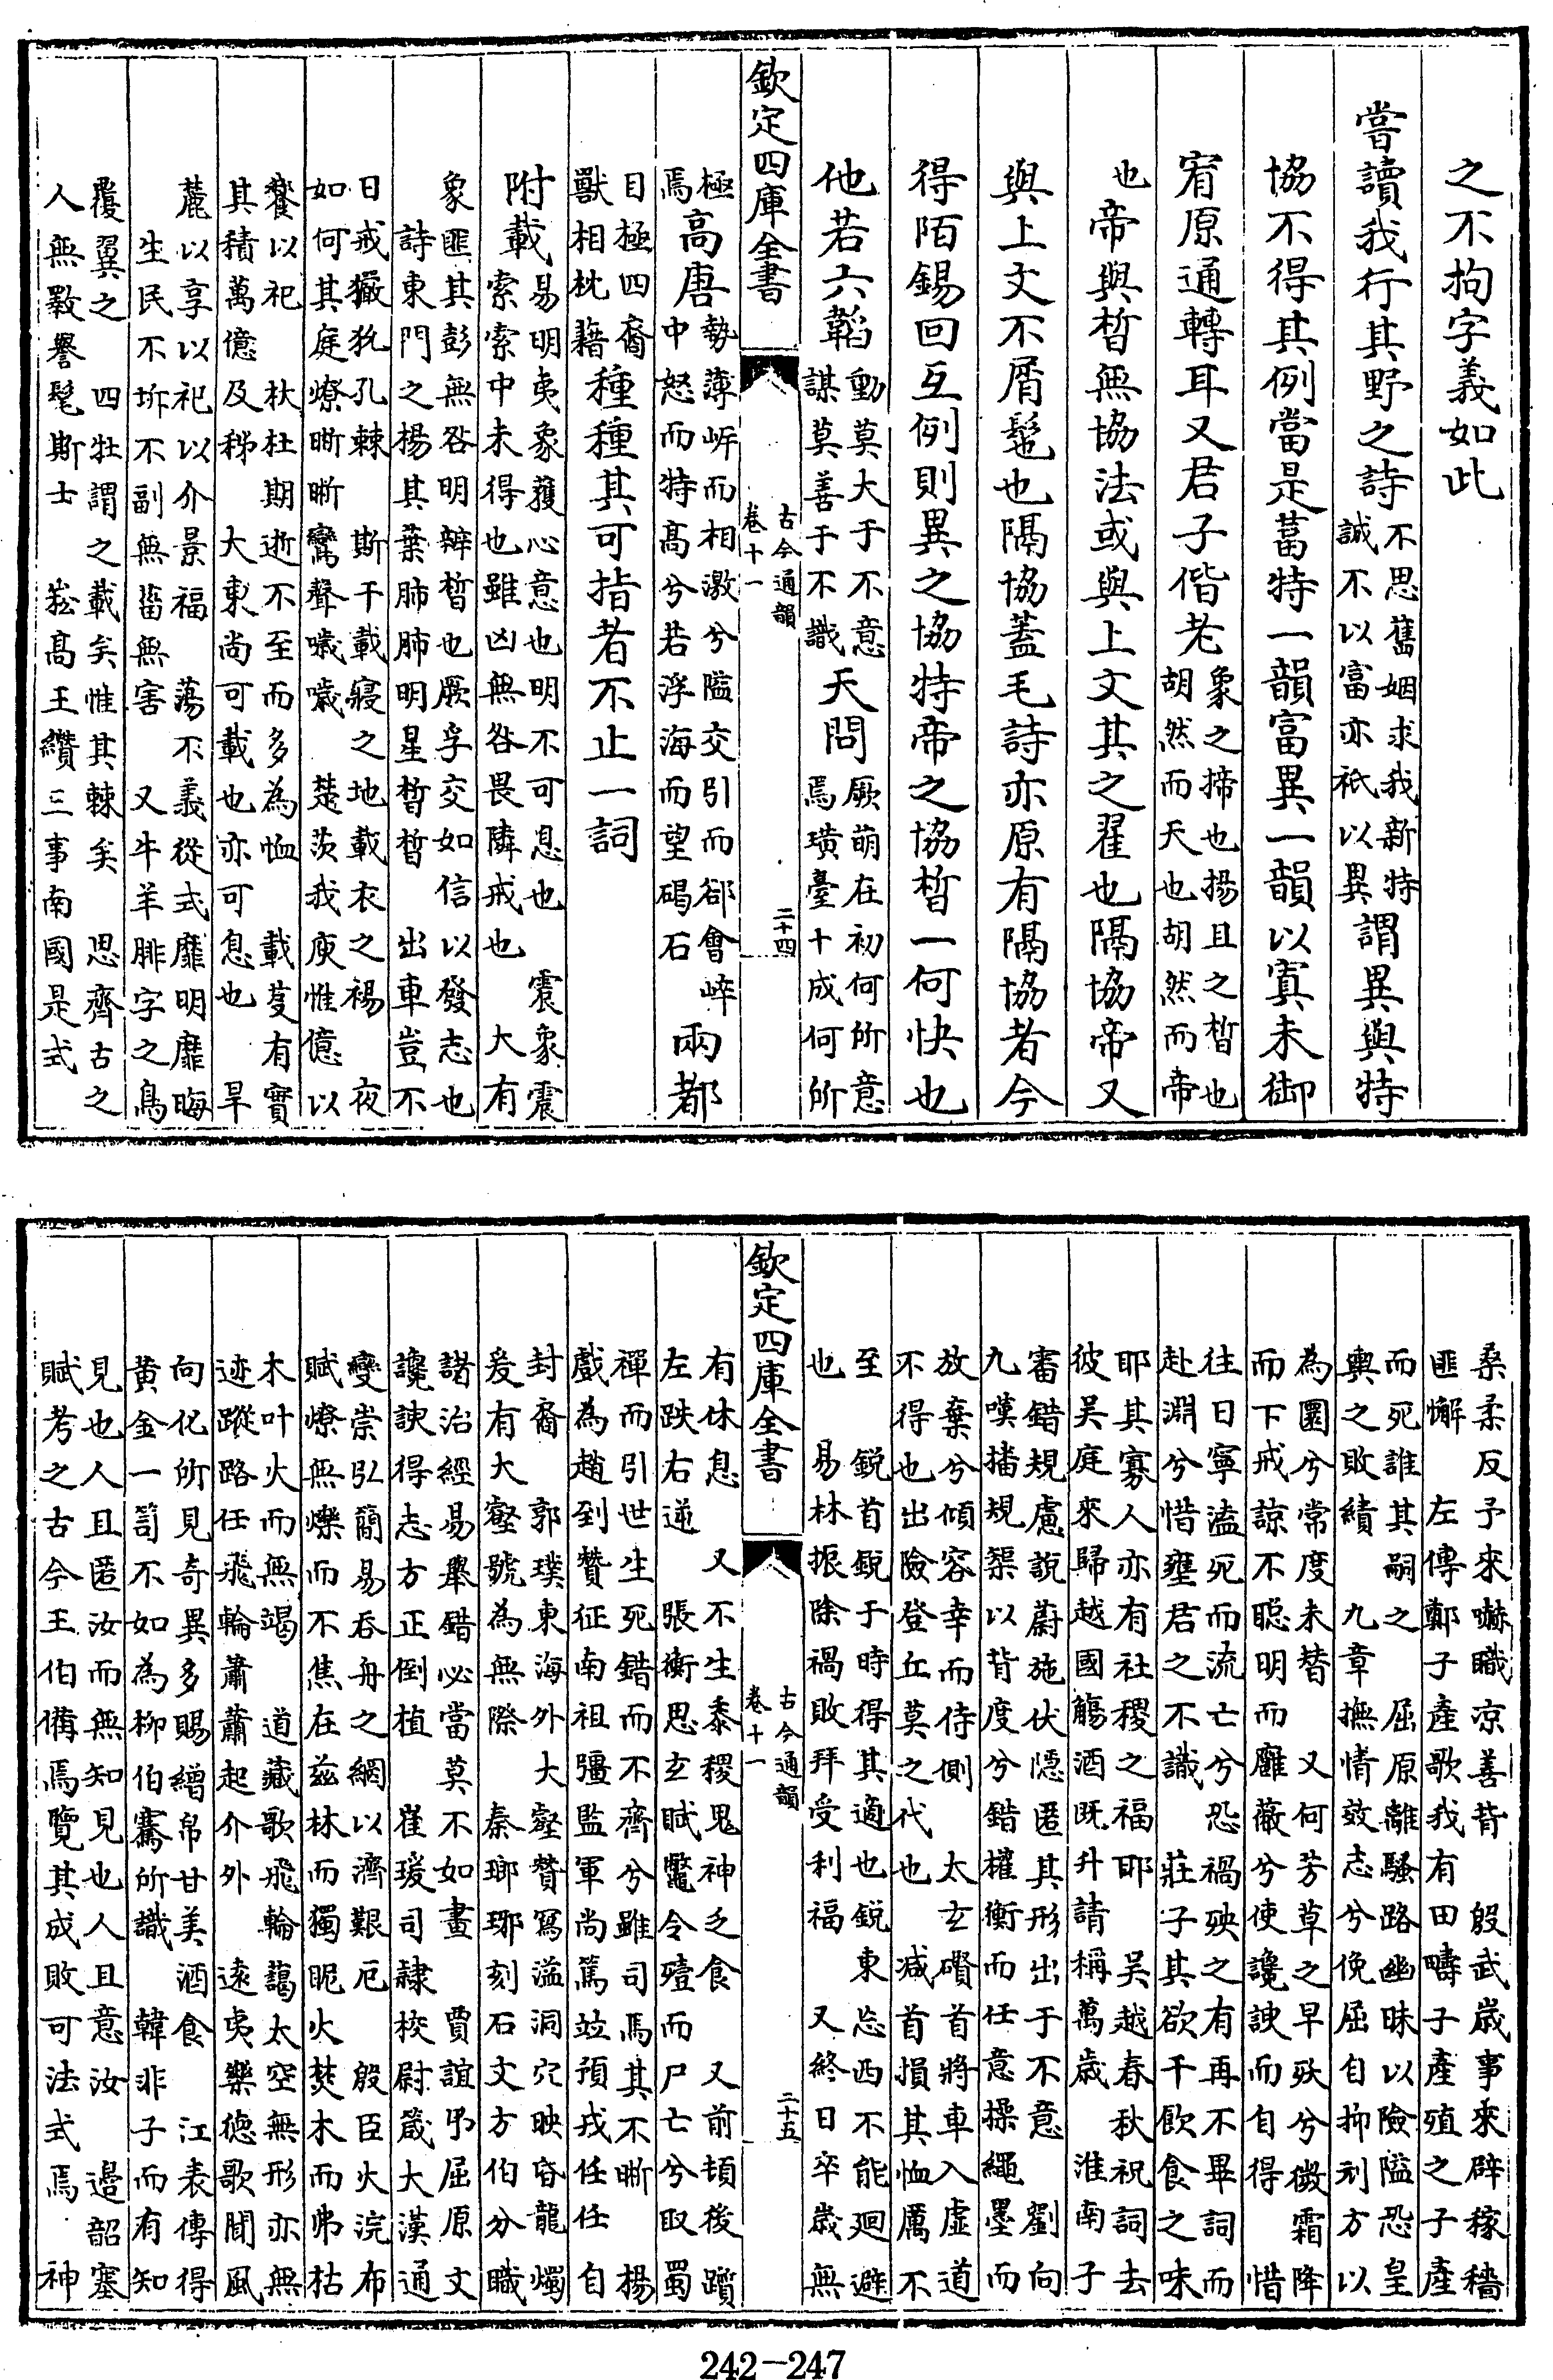 之不拘字義如此
嘗讀我行其野之詩
不思舊姻求我新特
誠不以富亦祇以異
謂異與特
協不得其例當是葍特一韻富異一韻以寘未御
宥原通轉耳又君子偕老
象之揥也揚且之晳也
胡然而天也胡然而帝
也
帝與晳無協法或與上文其之翟也隔協帝又
與上文不屑髢也隔協蓋毛詩亦原有隔協者今
得陌錫回互例則異之協特帝之協晳一何快也
他若六韜
動莫大于不意
謀莫善于不識
天問
厥萌在初何所意
焉璜臺十成何所
極
焉
高唐
勢薄岝而相激兮隘交引而郤會崪
中怒而特高兮若浮海而望碣石
兩都
目極四裔
獸相枕藉
種種其可指者不止一詞
附載
易明夷象獲心意也明不可息也 震象震
索索中未得也雖凶無咎畏隣戒也 大有
象匪其彭無咎明辯晳也厥孚交如信以發志也
詩東門之楊其葉肺肺明星晳晳 出車豈不
日戒玁狁孔棘 斯干載寢之地載衣之裼 夜
如何其庭燎晣晣鸞聲噦噦 楚茨我庾惟億以
饗以祀 杕杜期逝不至而多為恤 載芟有實
其積萬億及秭 大東尚可載也亦可息也 旱
麓以享以祀以介景福 蕩不義從式靡明靡晦
生民不坼不副無菑無害 又牛羊腓字之鳥
覆翼之 四牡謂之載矣惟其棘矣 思齊古之
人無斁譽髦斯士 崧高王纘三事南國是式
欽定四庫全書
古今通韻
卷十一
二十四
桑柔反予來嚇職涼善背 殷武歲事來辟稼穡
匪懈 左傳鄭子產歌我有田疇子產殖之子產
而死誰其嗣之 屈原離騷路幽昧以險隘恐皇
輿之敗績 九章撫情效志兮俛屈自抑刓方以
為圜兮常度未替 又何芳草之早殀兮微霜降
而下戒諒不聰明而廱蔽兮使讒諛而自得 惜
往日寧溘死而流亡兮恐禍殃之有再不畢詞而
赴淵兮惜壅君之不識 莊子其欲干飲食之味
耶其寡人亦有社稷之福耶 吳越春秋祝詞去
彼吳庭來歸越國觴酒既升請稱萬歲 淮南子
審錯規慮說蔚施伏隱匿其形出于不意 劉向
九嘆播規榘以背度兮錯權衡而任意操繩墨而
放棄兮傾容幸而侍側 太玄礥首將車入虛道
不得也出險登丘莫之代也 減首損其恤厲不
至 銳首銳于時得其適也銳東忘西不能廻避
也 易林振除禍敗拜受利福 又終日卒歲無
有休息 又不生黍稷鬼神乏食 又前頓後躓
左跌右逆 張衡思玄賦鼈令殪而尸亡兮取蜀
禪而引世生死錯而不齊兮雖司焉其不晣 揚
戲為趙到贊征南祖彊監軍尚篤竝預戎任任自
封裔 郭璞東海外大壑贊寫溢洞穴映昏龍燭
爰有大壑號為無際 秦瑯琊刻石文方伯分職
諸治經易舉錯必當莫不如畫 賈誼弔屈原文
讒諛得志方正倒植 崔瑗司隸校尉箴大漢通
變崇弘簡易吞舟之網以濟艱厄 殷臣火浣布
賦燎無爍而不焦在兹林而獨昵火焚木而弗枯
木叶火而無竭 道藏歌飛輪藹太空無形亦無
迹蹤路任飛輪蕭蕭起介外 遠夷樂德歌聞風
向化所見奇異多賜繒帛甘美酒食 江表傳得
黄金一笥不如為柳伯騫所識 韓非子而有知
見也人且匿汝而無知見也人且意汝 邊韶塞
賦考之古今王伯備焉覽其成敗可法式焉 神
欽定四庫全書
古今通韻
卷十一
二十五
242-247